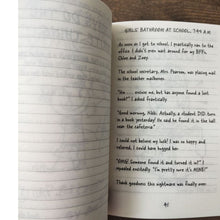 GIRLS' BATHROOM AT SCHOOL, 7:44 A.M.
As soon as I got to school, I practically ran to the
office. I didn't even wait around for my BFFs,
Chloe and Zoey.
The school secretary, Mrs. Pearson, was placing mail in
the teacher mailboxes.
"Um . . . excuse me, but has anyone found a lost
book?" I asked frantically.
"Good morning, Nikki. Actually, a student DID turn
in a book yesterday! He said he found it in the hall
near the cafeteria."
I could not believe my luck! I was so happy and
relieved, I could have hugged her.
"OMG! Someone found it and turned it in?" I
repeated excitedly. "I'm pretty sure it's MINE!"
Thank goodness this nightmare was finally over.